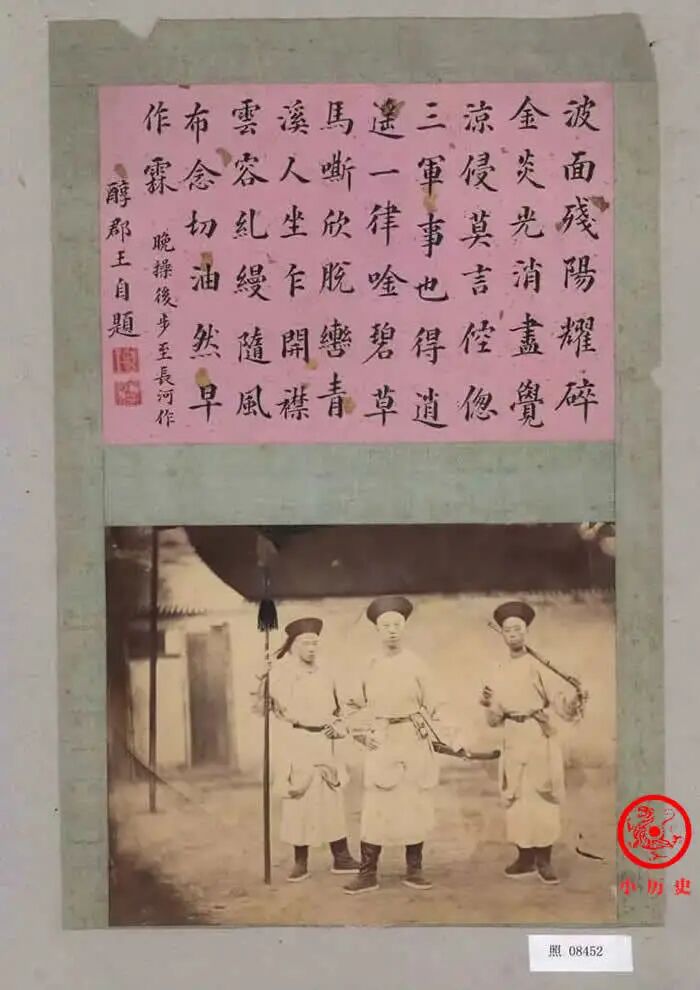 波面殘陽耀碎
金炎光消盡覺
涼侵莫言倥偬
三軍事也得逍
遥一律唫碧草
馬嘶欣脫轡青
溪人坐乍開襟
雲容乣縵隨風
布念切油然早
作霖
晚操後步至長河作
醇郡王自題
小历史
照 08452